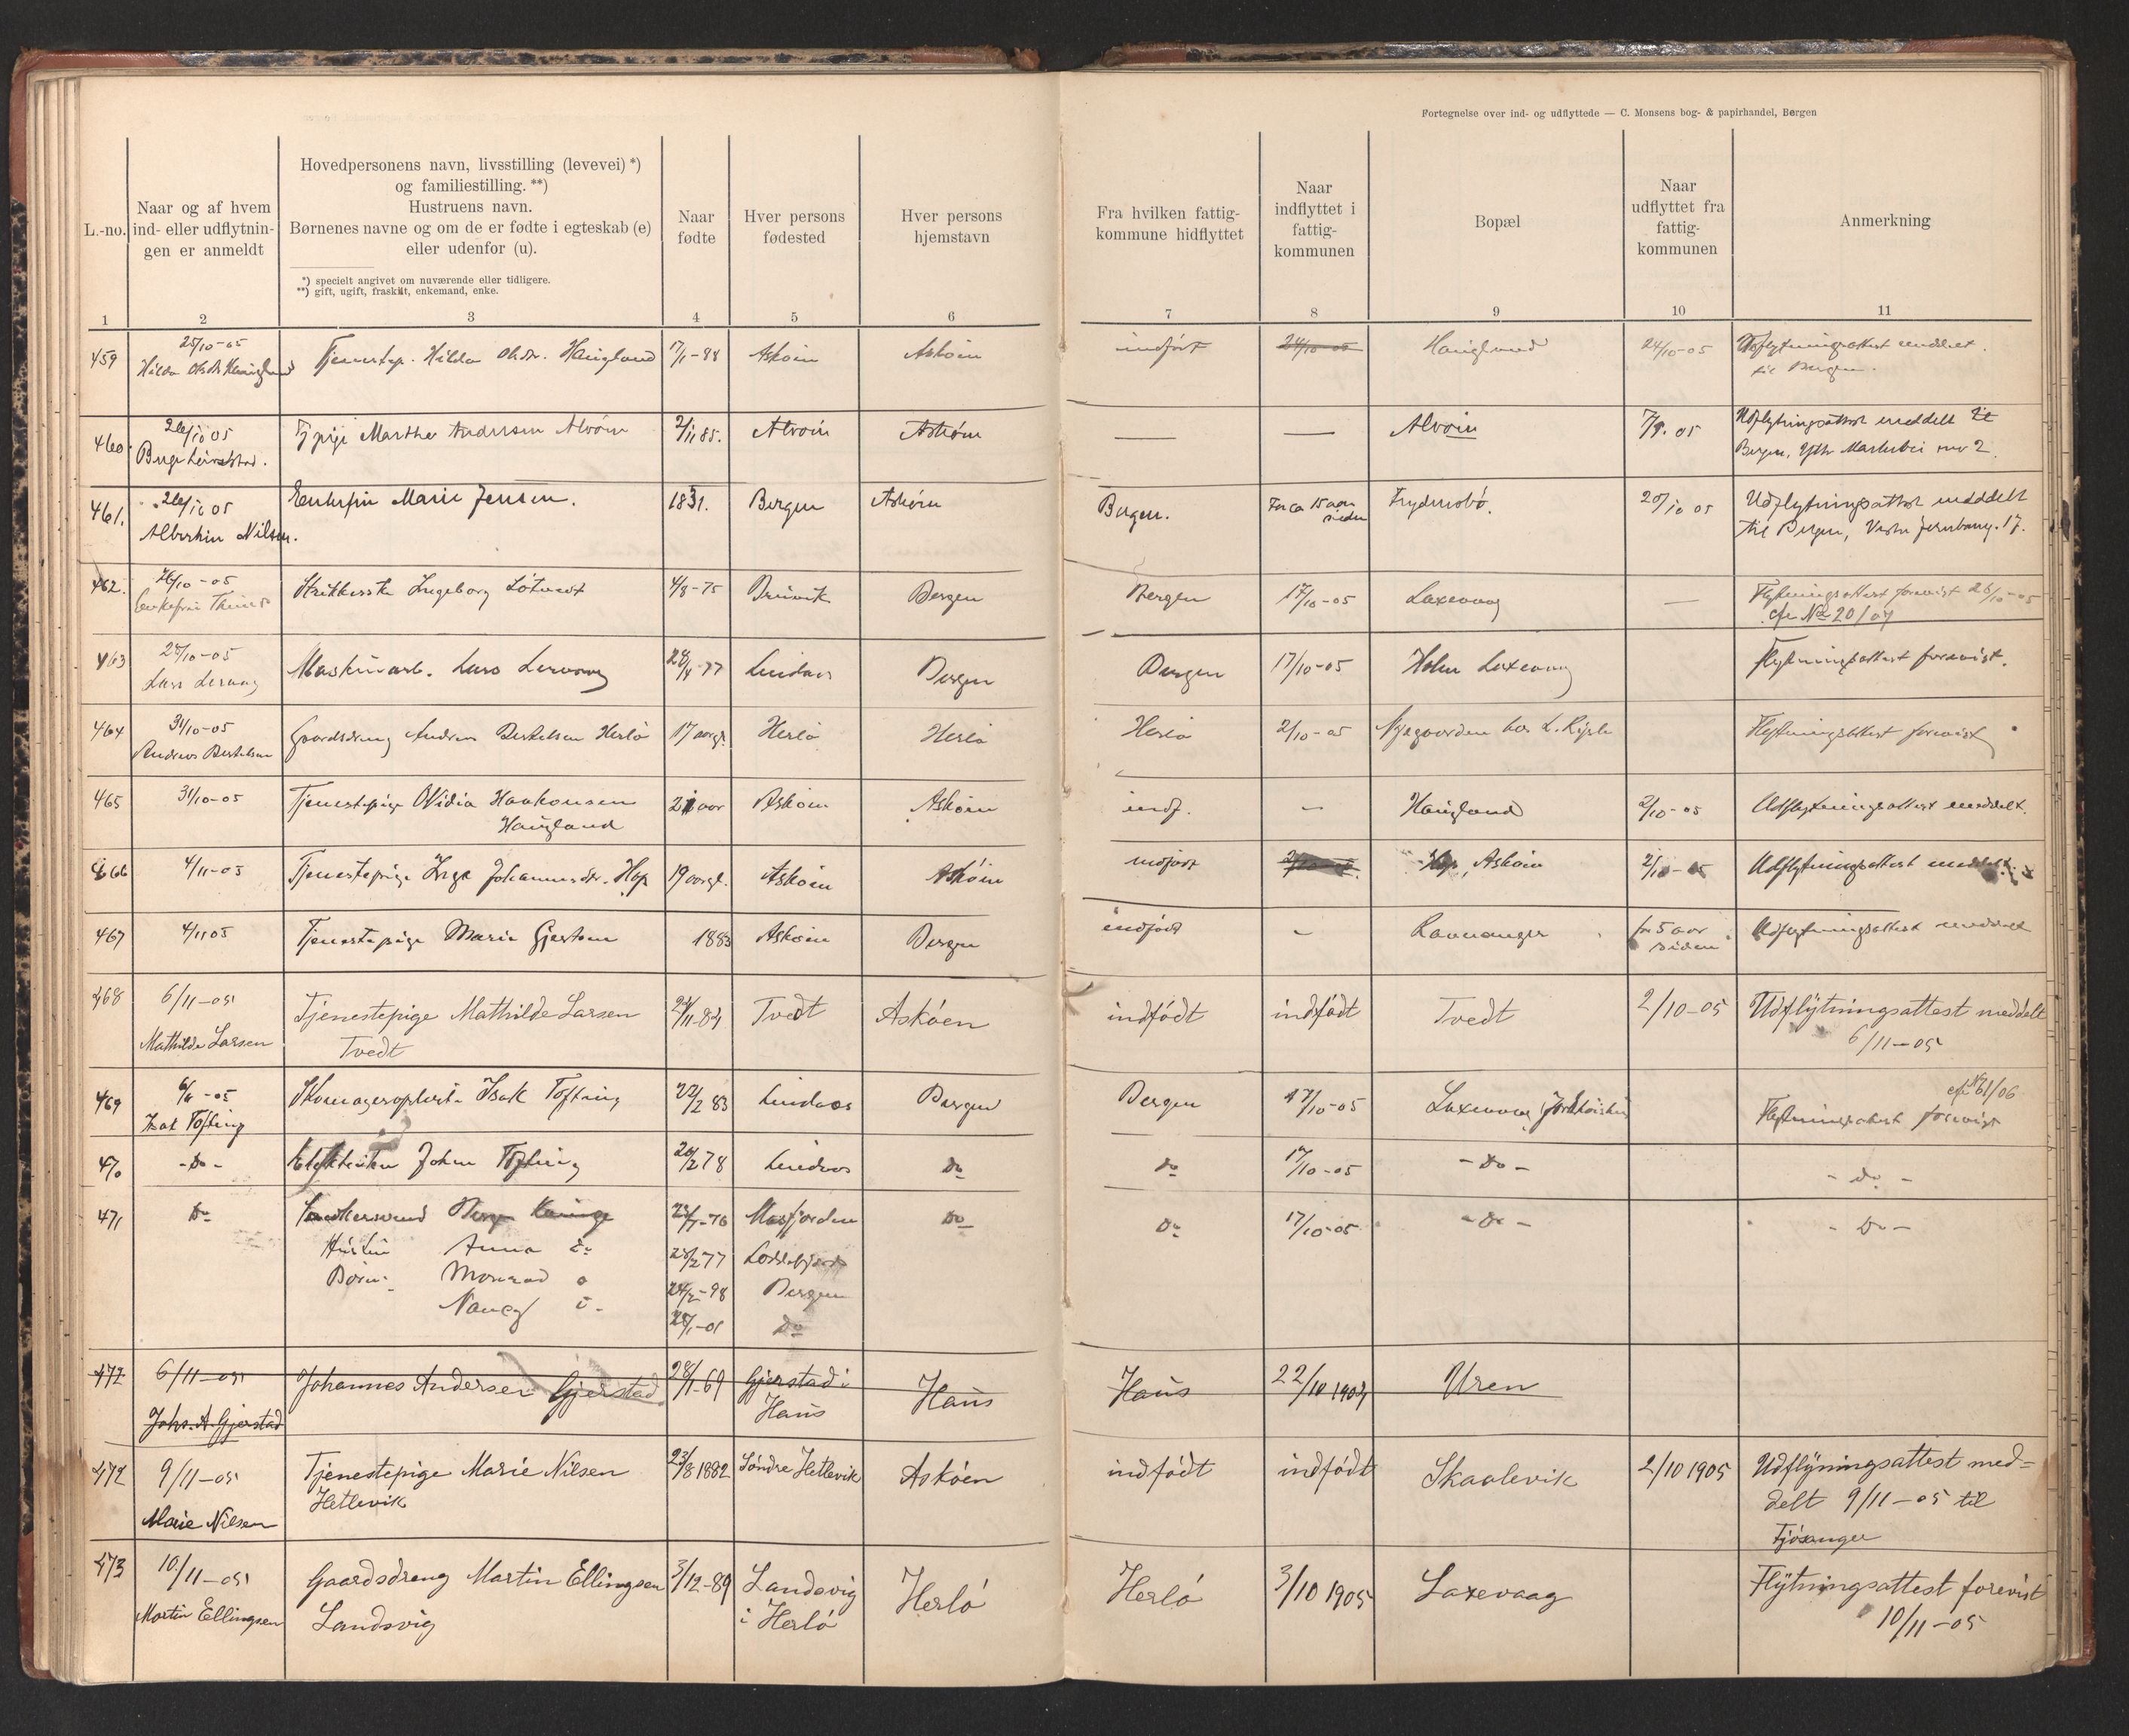 Fortegnelse over ind- og udflyttede — C. Monsens bog- & papirhandel, Bergen
L.-no.
Naar og af hvem
ind- eller udflytnin-
gen er anmeldt
Hovedpersonens navn, livsstilling (levevei) *)
og familiestilling. **)
Hustruens navn.
Børnenes navne og om de er fødte i egteskab (e)
eller udenfor (u).
*) specielt angivet om nuværende eller tidligere.
**) gift, ugift, fraskilt, enkemand, enke.
Naar
fødte
Hver persons
fødested
Hver persons
hjemstavn
Fra hvilken fattig-
kommune hidflyttet
Naar
indflyttet i
fattig-
kommunen
Bopæl
Naar
udflyttet fra
fattig-
kommunen
Anmerkning
1 2 3 4 5 6 7 8 9 10 11
459 25/10-05 Tjenestep. Hilda Haugland 17/1-88 Askøen Askøen indført 24/10-05 Haugland 24/10-05 Udflytningsattest meddelt
til Bergen.
460 26/10 05 Tj pige Marthe Andersen Alvøen 2/11 85. Alvøen Askøen — — Alvøen 7/9. 05 Udflytningsattest meddelt til
Bergen,
461. 26/10 05 Enkefru Marie Jensen. 1831. Bergen Askøen Bergen. For ca 15 aar Frydensbø. 20/10 05 Udflytningsattest meddelt
Nilsen. siden til Bergen,
462. 26/10-05 Ingeborg 4/8-75 Bruvik Bergen Bergen 17/10-05 Laxevaag — Flytningsattest forevist 26/10-05
Enkefru cfr No 20/07
463 28/10-05 Maskinarb. Lars Lervaag 77 Lindaas Bergen Bergen 17/10-05 Holen Laxevaag Flytningsattest forevist.
Lars Lervaag
464 31/10-05 Gaardsdreng Andreas Bertelsen Herlø 17 aargl. Herlø Herlø Herlø 2/10-05 Nygaarden hos L. Flytningsattest forevist
Andreas Bertelsen
465 31/10-05 Tjenestepige Ovidia Haakonsen 21 aar Askøen Askøen indf. - Haugland 2/10-05 Udflytningsattest meddelt.
Haugland
466 4/11-05 Tjenestepige Inga Johannesdr. Hop 19 aargl. Askøen Askøen indført Hop, Askøen 2/10-05 Udflytningsattest meddelt
467 4/11 05 Tjenestepige Marie Gjertsen 1883 Askøen Bergen indfødt - Ravnanger for 5 aar Udflytningsattest meddelt
siden
468 6/11-05 Tjenestepige Mathilde Larsen Tvedt Askøen indfødt indfødt Tvedt 2/10-05 Udflytningsattest meddelt
Mathilde Larsen Tvedt 6/11-05
469 6/11-05 Isak Tofting 22/2 83 Lindaas Bergen Bergen 17/10-05 Laxevaag cfr 61/06
Isak Tofting Flytningsattest forevist
470 -Do- John Tofting 20/2 78 Lindaas Do Do 17/10-05 -Do- -do-
471 Do -76 Masfjorden Do Do 17/10-05 -Do- -Do-
Hustru Anna do 28/2 77 Loddefjord
Børn: Monrad 24/2-98 Bergen
Nancy 28/1-01 Do
472 6/11-05 Johannes Andersen Gjerstad 28/1-69 Gjerstad i Haus Haus 22/10 1904 Uren
Johs. A. Gjerstad Haus
472 9/11-05 Tjenestepige Marie Nilsen 23/8 1882 Søndre Hetlevik Askøen indfødt indfødt Skaalevik 2/10 1905 Udflytningsattest med-
Marie Nilsen Hetlevik delt 9/11-05 til
Fjøsanger
473 10/11-05 Gaardsdreng Martin Ellingsen 3/12-89 Landsvig Herlø Herlø 3/10 1905 Laxevaag Flytningsattest forevist
Martin Ellingsen Landsvig i Herlø 10/11-05